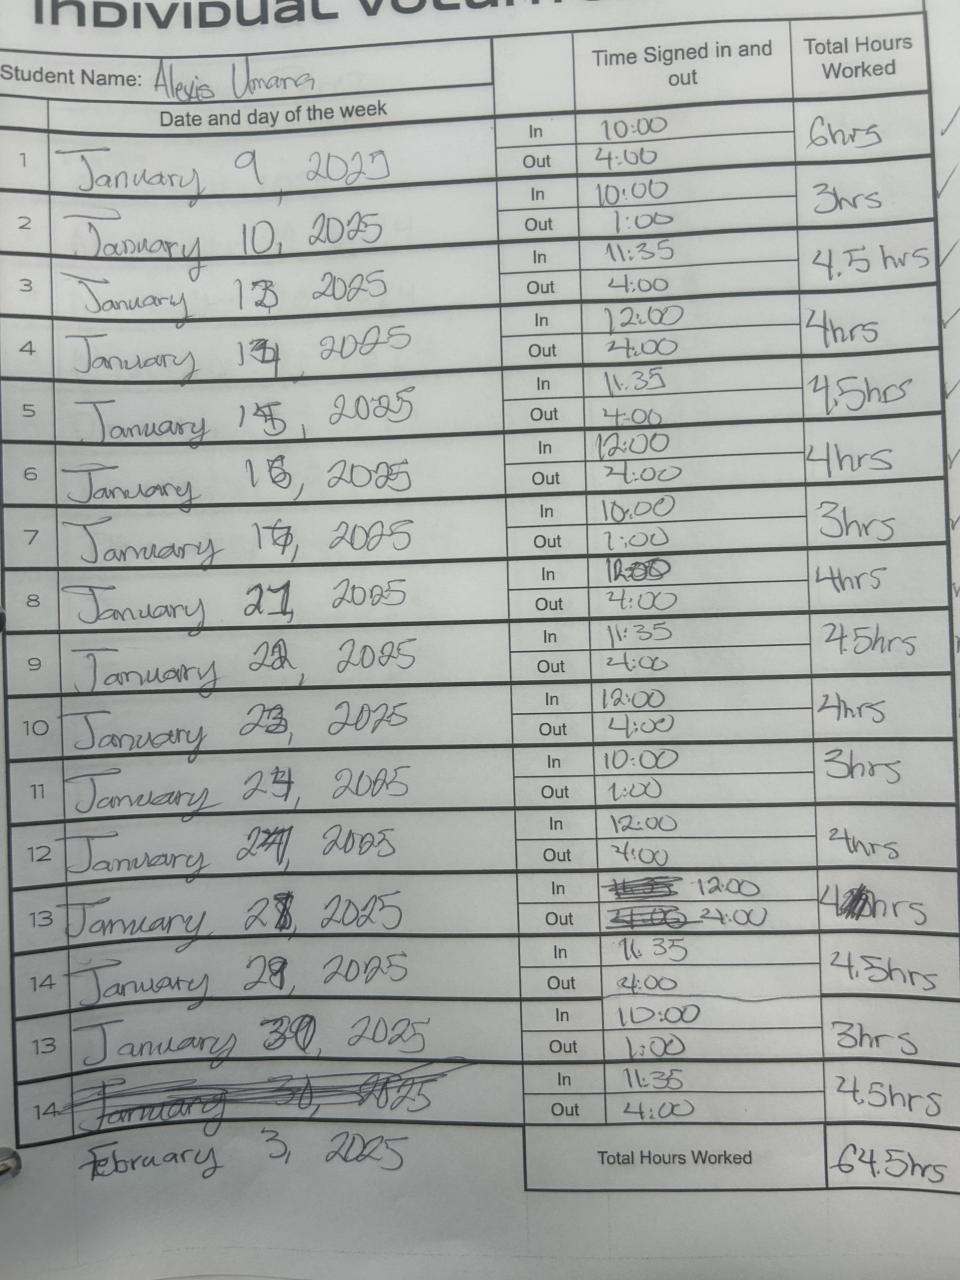 INDIVIDUAL
Student Name: Alexis Umana
Time Signed in and out
Total Hours Worked
Date and day of the week
1 January 9, 2025 In 10:00 6hrs
Out 4:00
2 January 10, 2025 In 10:00 3hrs
Out 1:00
3 January 13 2025 In 11:35 4.5 hrs
Out 4:00
4 January 14, 2025 In 12:00 4hrs
Out 4:00
5 January 15, 2025 In 11:35 4.5hrs
Out 4:00
6 January 16, 2025 In 12:00 4hrs
Out 4:00
7 January 17, 2025 In 10:00 3hrs
Out 1:00
8 January 21, 2025 In 12:00 4hrs
Out 4:00
9 January 22, 2025 In 11:35 4.5hrs
Out 4:00
10 January 23, 2025 In 12:00 4hrs
Out 4:00
11 January 24, 2025 In 10:00 3hrs
Out 1:00
12 January 2025 In 12:00 4hrs
Out 4:00
13 January 28, 2025 In 12:00 4hrs
Out 4:00
14 January 29, 2025 In 11:35 4.5hrs
Out 4:00
13 January 2025 In 10:00 3hrs
Out 1:00
14 January 30, 2025 In 11:35 4.5hrs
Out 4:00
February 3, 2025
Total Hours Worked 64.5hrs